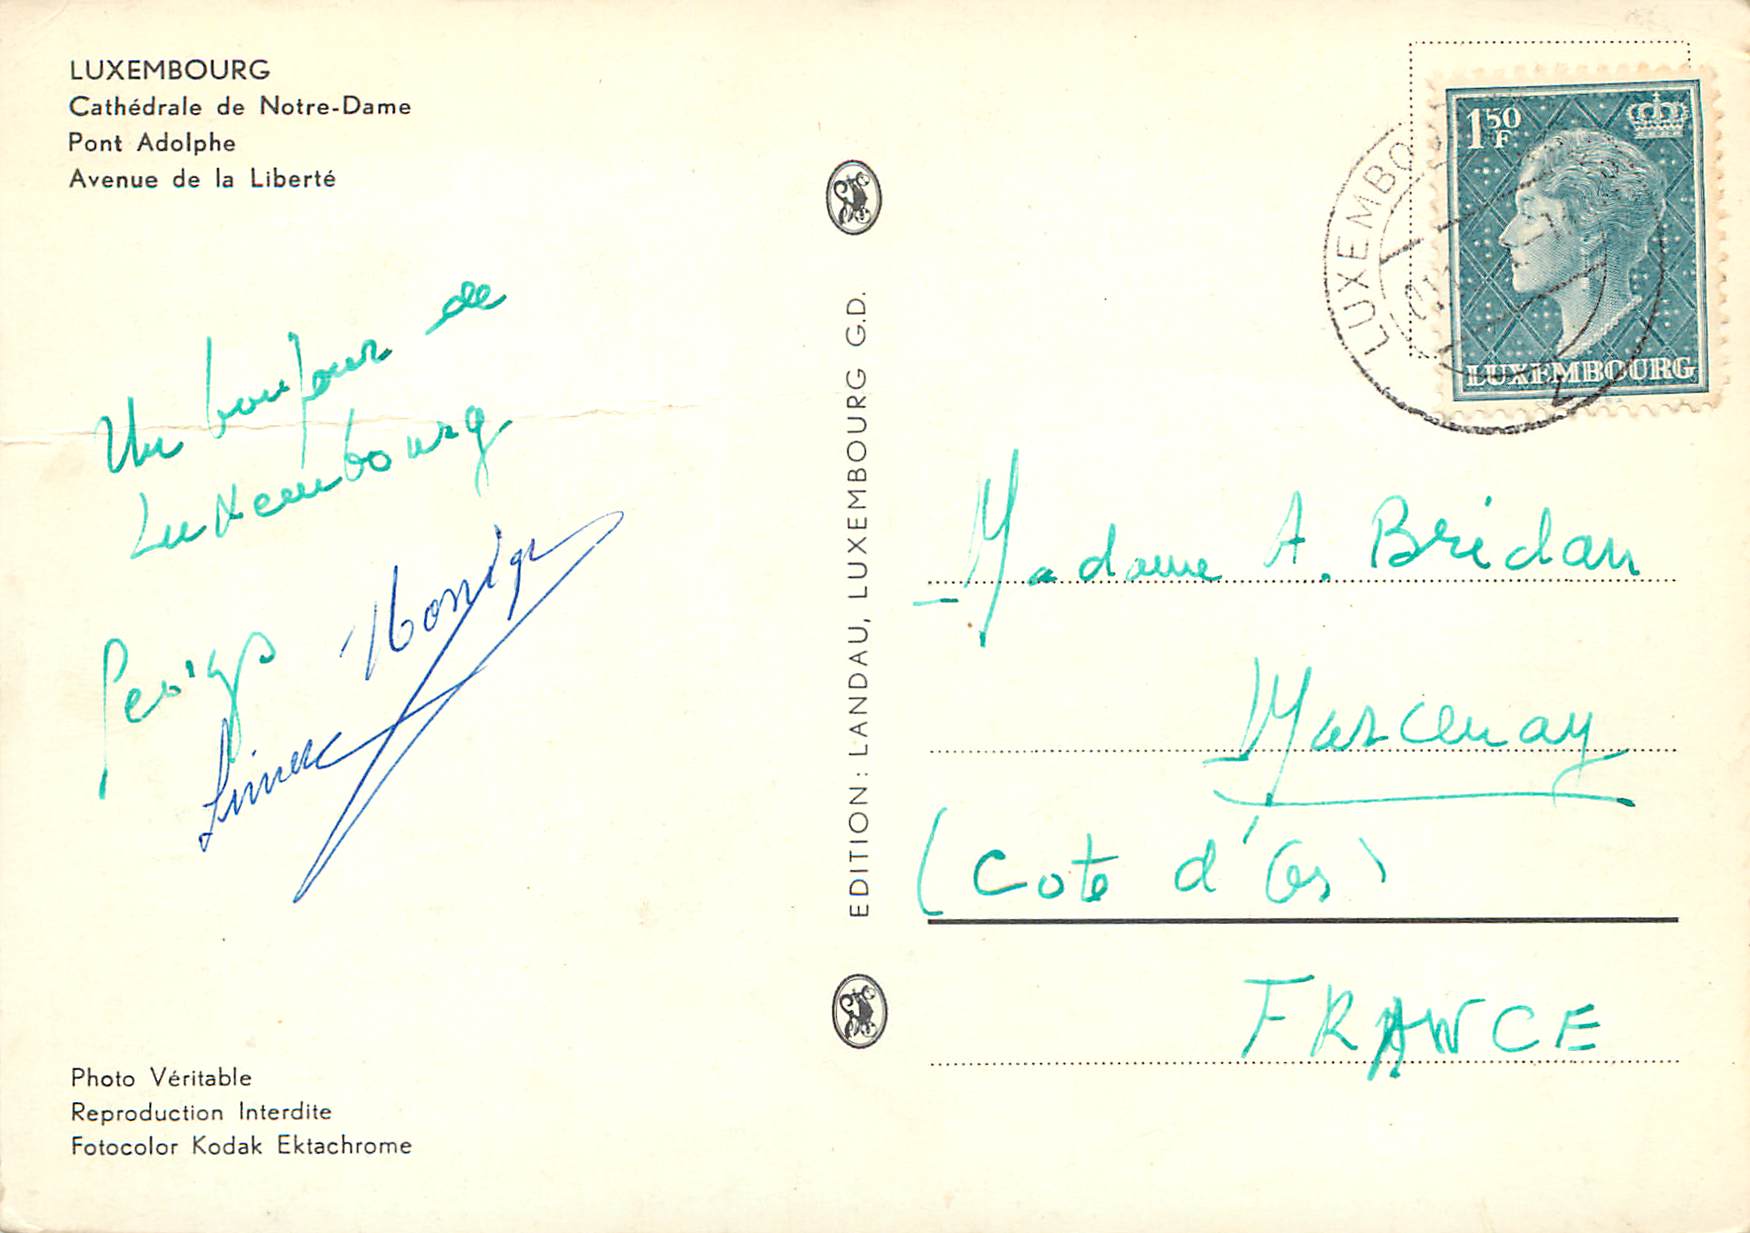 LUXEMBOURG
Cathédrale de Notre-Dame
Pont Adolphe
Avenue de la Liberté
Un bonjour de
Luxembourg
EDITION : LANDAU, LUXEMBOURG G.D.
1 50 F
LUXEMBOURG
Madame A. Bridan
Marcenay
(Cote d'Or)
FRANCE
Photo Véritable
Reproduction Interdite
Fotocolor Kodak Ektachrome